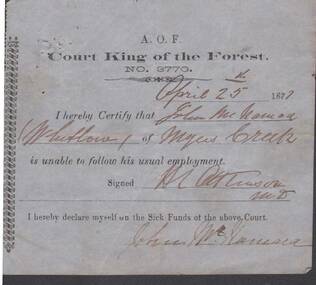 A. O. F.
Court King of the Forest.
NO. 3770.
April 25th 1877
I hereby Certify that John McNamara
(Whitlow) of Myers Creek
is unable to follow his usual employment.
Signed H L Atkinson
MD
I hereby declare myself on the Sick Funds of the above, Court.
John McNamara